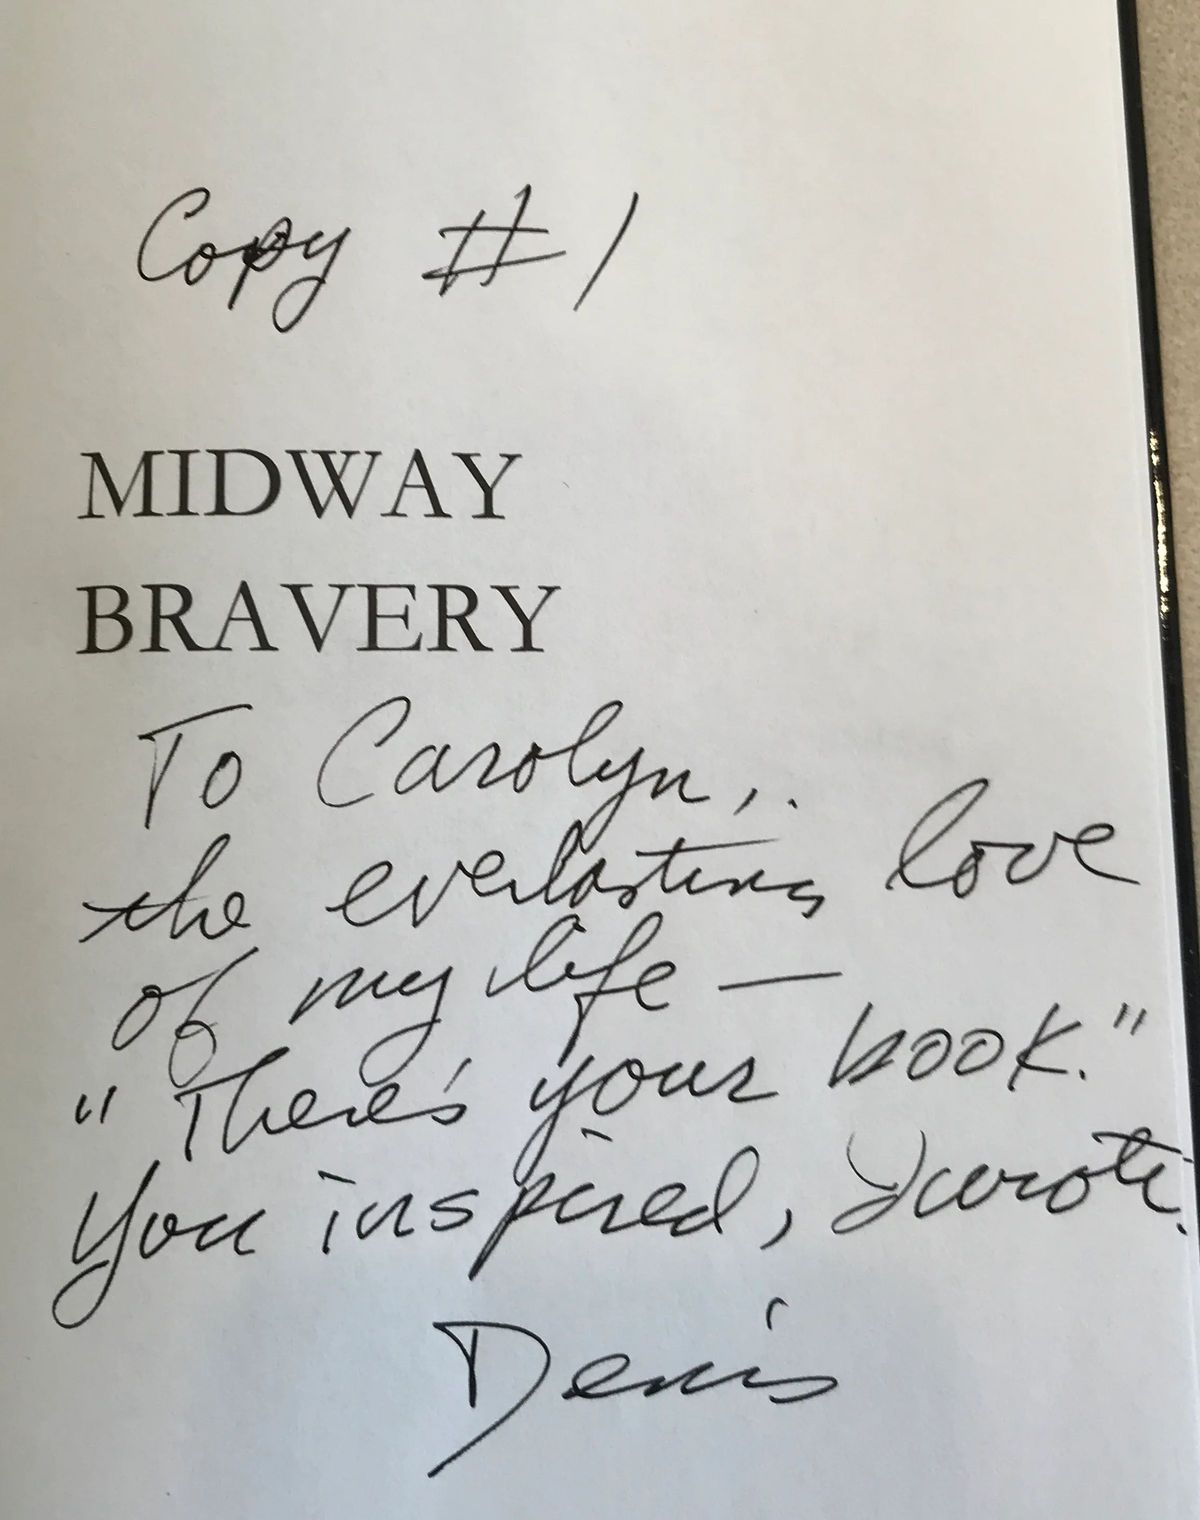 Copy #1
MIDWAY
BRAVERY
To Carolyn,.
the everlasting love
of my life —
"There's your book."
You inspired, I wrote.
Denis